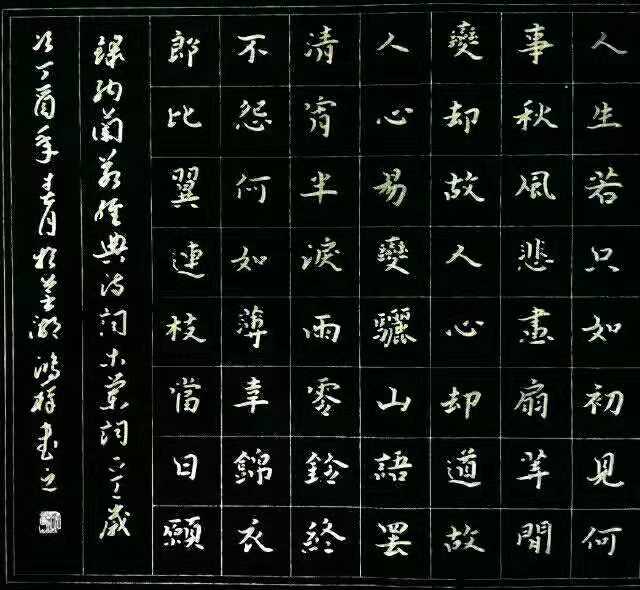 人生若只如初見何
事秋風悲畫扇等閒
變却故人心却道故
人心易變驪山語罷
清宵半淚雨零鈴終
不怨何如薄幸錦衣
郎比翼連枝當日願
録納蘭經典詩詞木蘭詞歲
次丁酉年月於蕪湖鴻書之